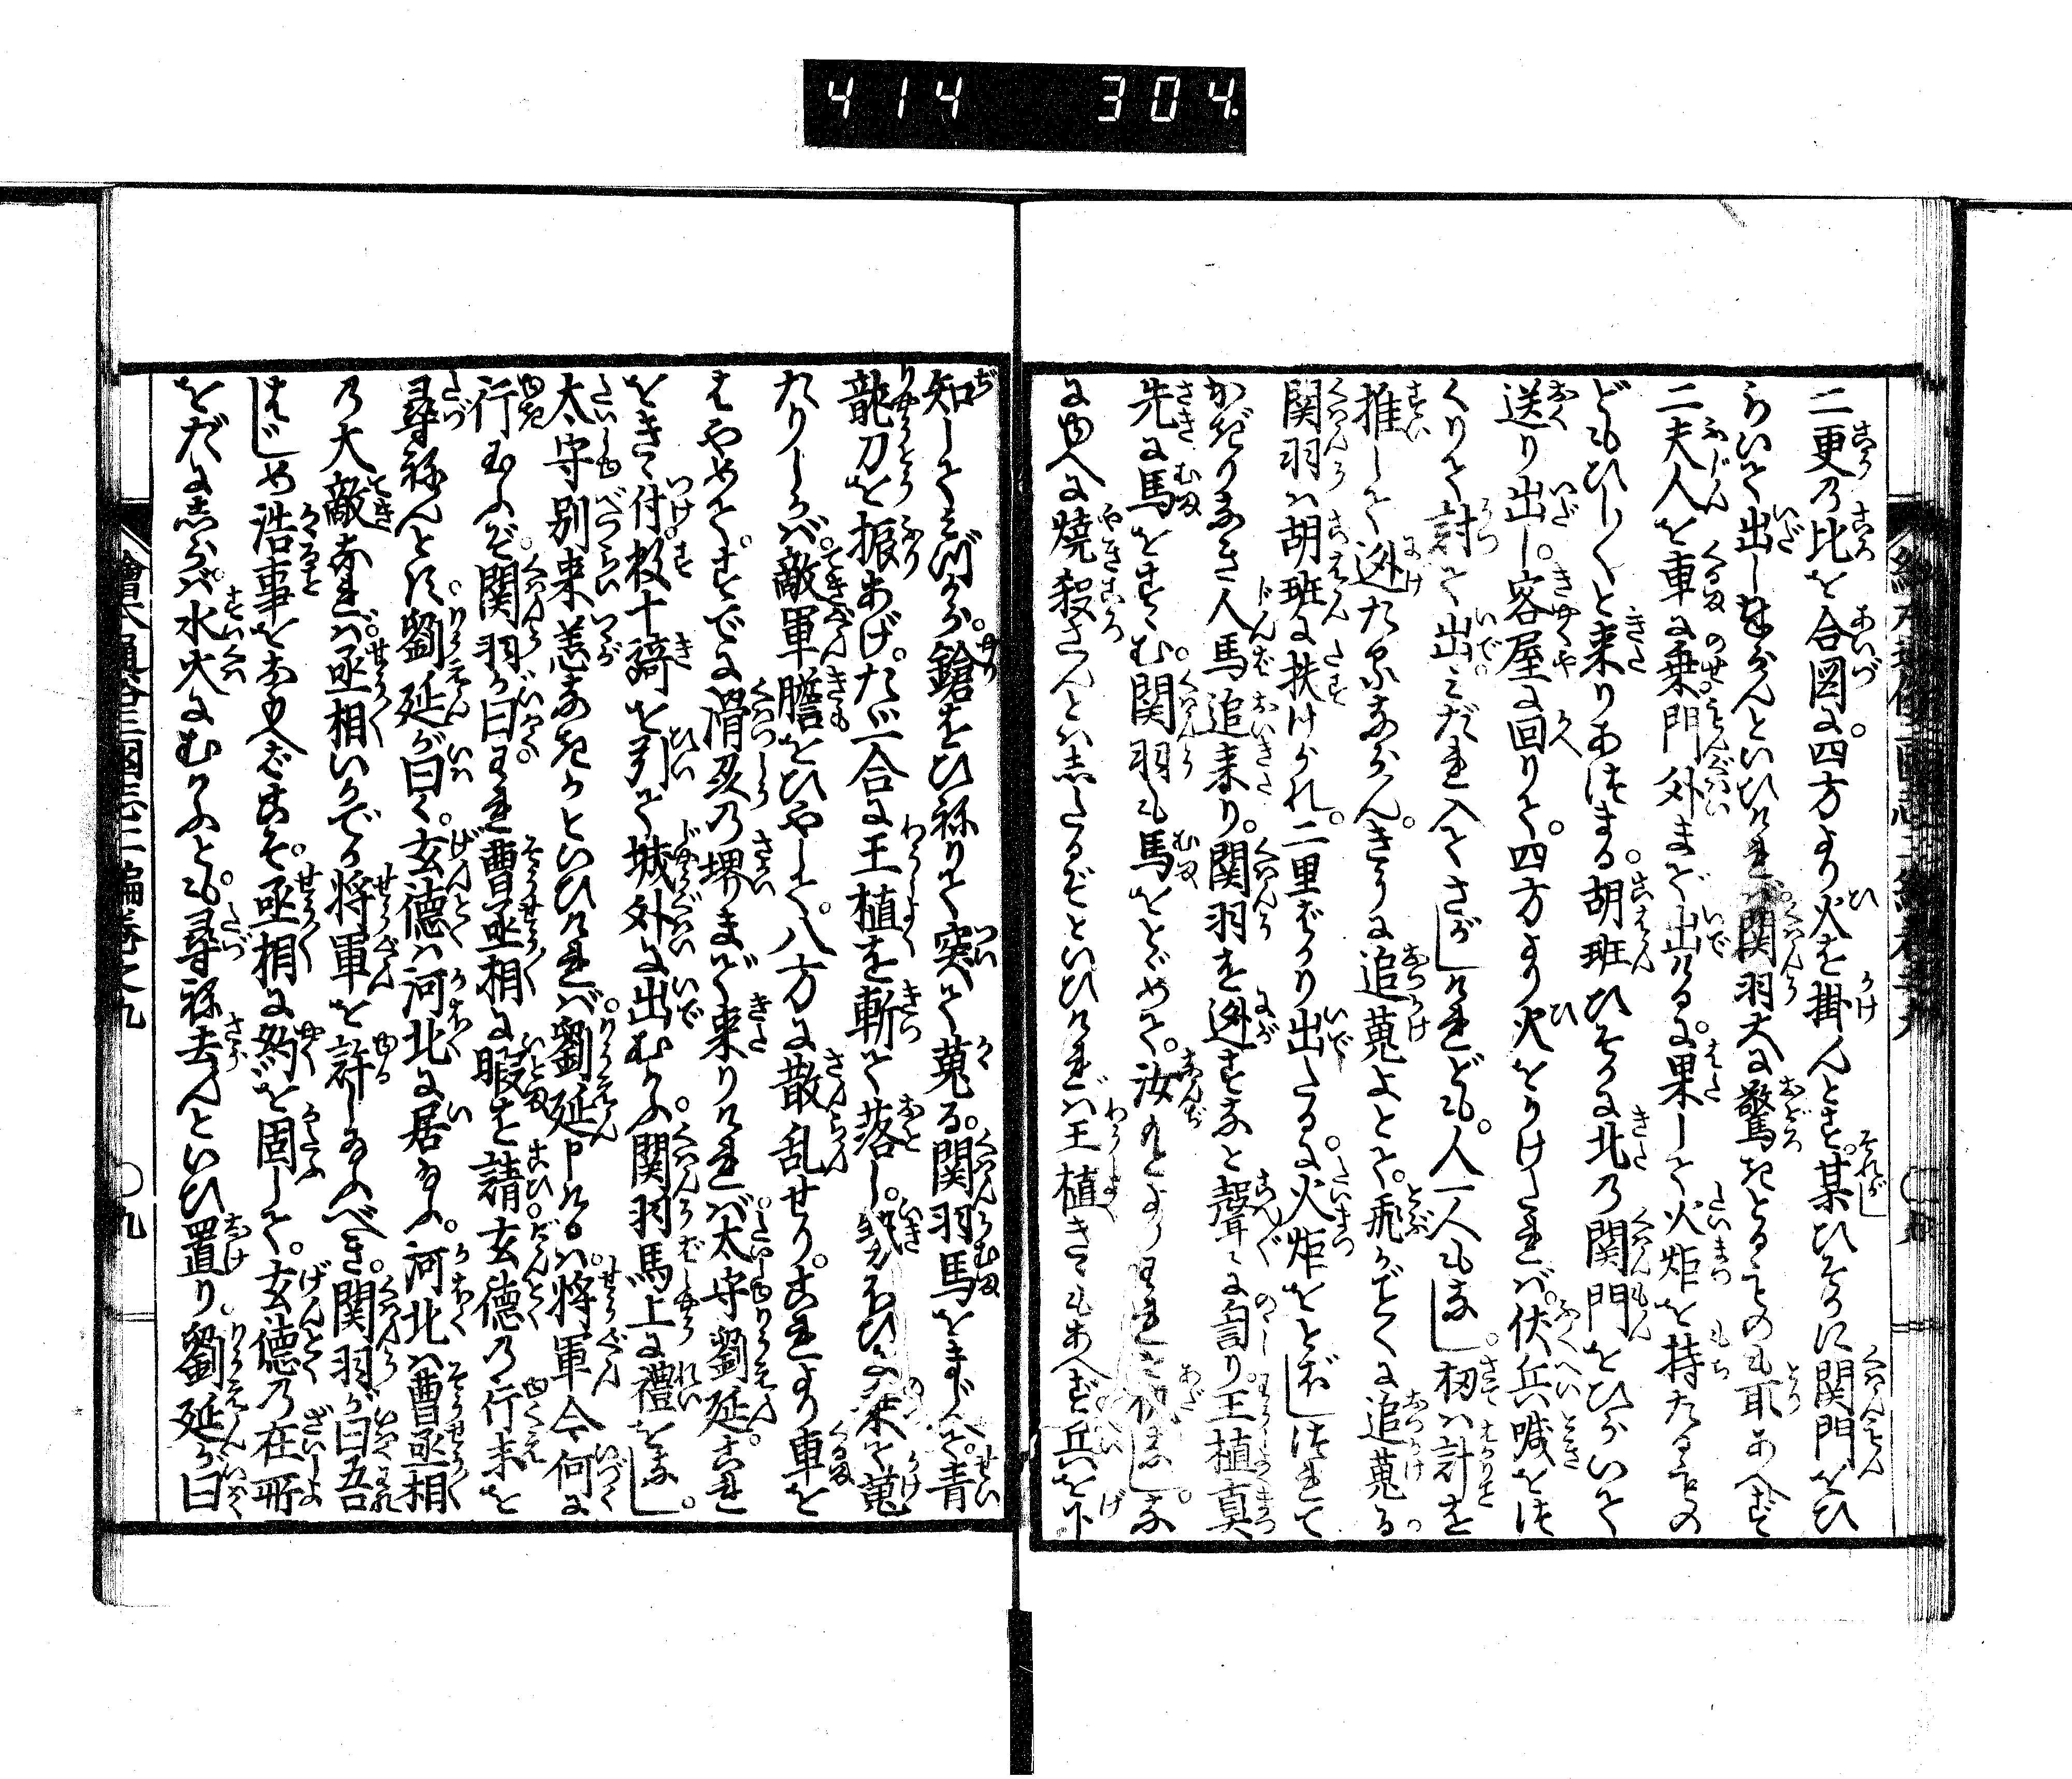 414 304
二更乃比を合図に。四方より火を掛んとす。某ひそかに関門をひ
らいて出し申さんといひければ関羽大に驚きとるものも取あへず
二夫人を車に乗門外まで出けるに。果して火炬を持たるもの
どもひしひしと来りあつまる。胡班ひそかに北乃関門をひらいて
送り出し。客屋に回りて。四方より火をかけたれば。伏兵喊をつ
くりて討て出。みだれ入てさがしけれども。人一人もなし。扨は計を
推して迯たるならん。きうに追蒐よとて。飛がごとくに追蒐る。
関羽は胡班に扶けられ。二里ばかり出たるに。火炬をとぼしつれて
かぎりなき人馬追来り。関羽を迯すなと聲々に訇り。王植真
先に馬をすゝむ。関羽も馬をとゞめて。汝
にゆへに焼殺さんとはしたるぞといひければ王植きゝもあへず兵を下
知してみづから。鎗をひねりて突て蒐る。関羽馬をまじへて。青
龍刀を振あげ。たゞ一合に王植を斬て落し。勢ひに乗て蒐
たりしかば。敵軍膽をひやして。八方に散乱せり。これより車を
はやめて。すでに滑州乃堺まで来りければ。太守劉延。これ
をきゝ付。数十騎を引て城外に出むかふ。関羽馬上に禮をなし。
太守別来恙なきかといひければ。劉延申けるは。将軍今何に
行玉ふぞ。関羽が曰。われ曹丞相に暇を請。玄徳乃行末を
尋ねんとす。劉延が曰く。玄徳は河北に居玉ふ。河北は曹丞相
乃大敵なれば。丞相いかでか将軍を許し玉ふべき。関羽が曰吾
はじめ浩事をおもへばこそ。丞相に約を固して。玄徳乃在所
をだにしらば水火にむかふとも。尋ね去んといひ置り。劉延が曰
繪本通俗三國志二編巻之九 〇九